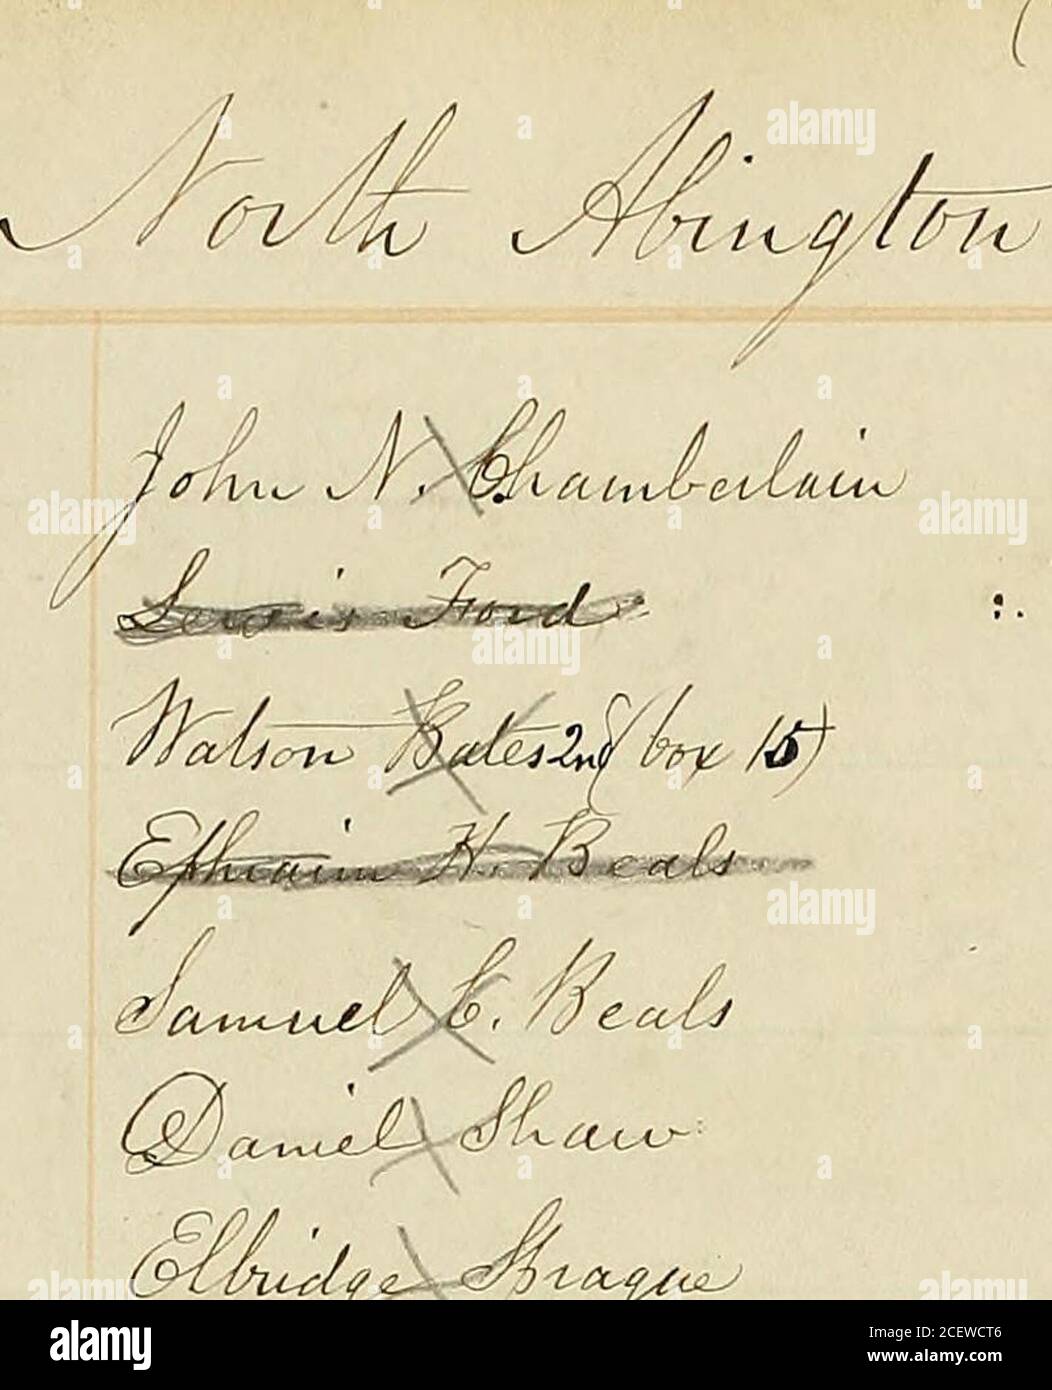 North Abington
John N. Chamberlain
Lewis Ford
Watson Bates 2nd (box 15)
Ephraim H. Beals
Samuel C. Beals
Daniel Shaw
Elbridge Sprague
alamy
Image ID: 2CEWCT6
www.alamy.com